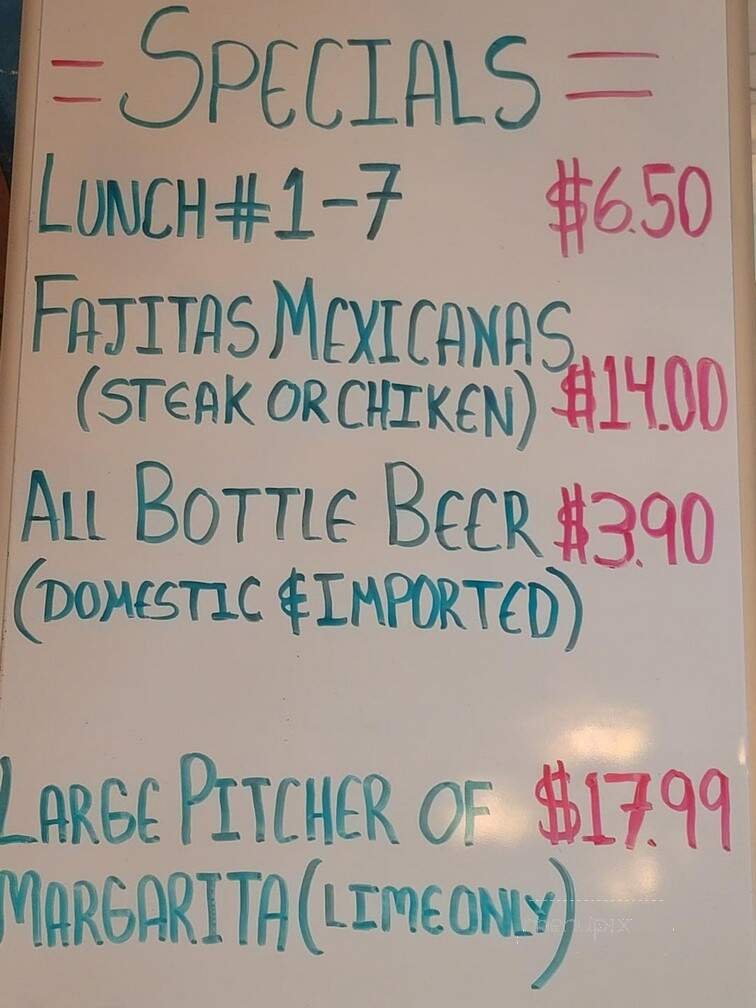 = SPECIALS =
LUNCH #1-7 $6.50
FAJITAS MEXICANAS
(STEAK OR CHIKEN) $14.00
ALL BOTTLE BEER $3.90
(DOMESTIC & IMPORTED)
LARGE PITCHER OF $17.99
MARGARITA (LIME ONLY)
menupix